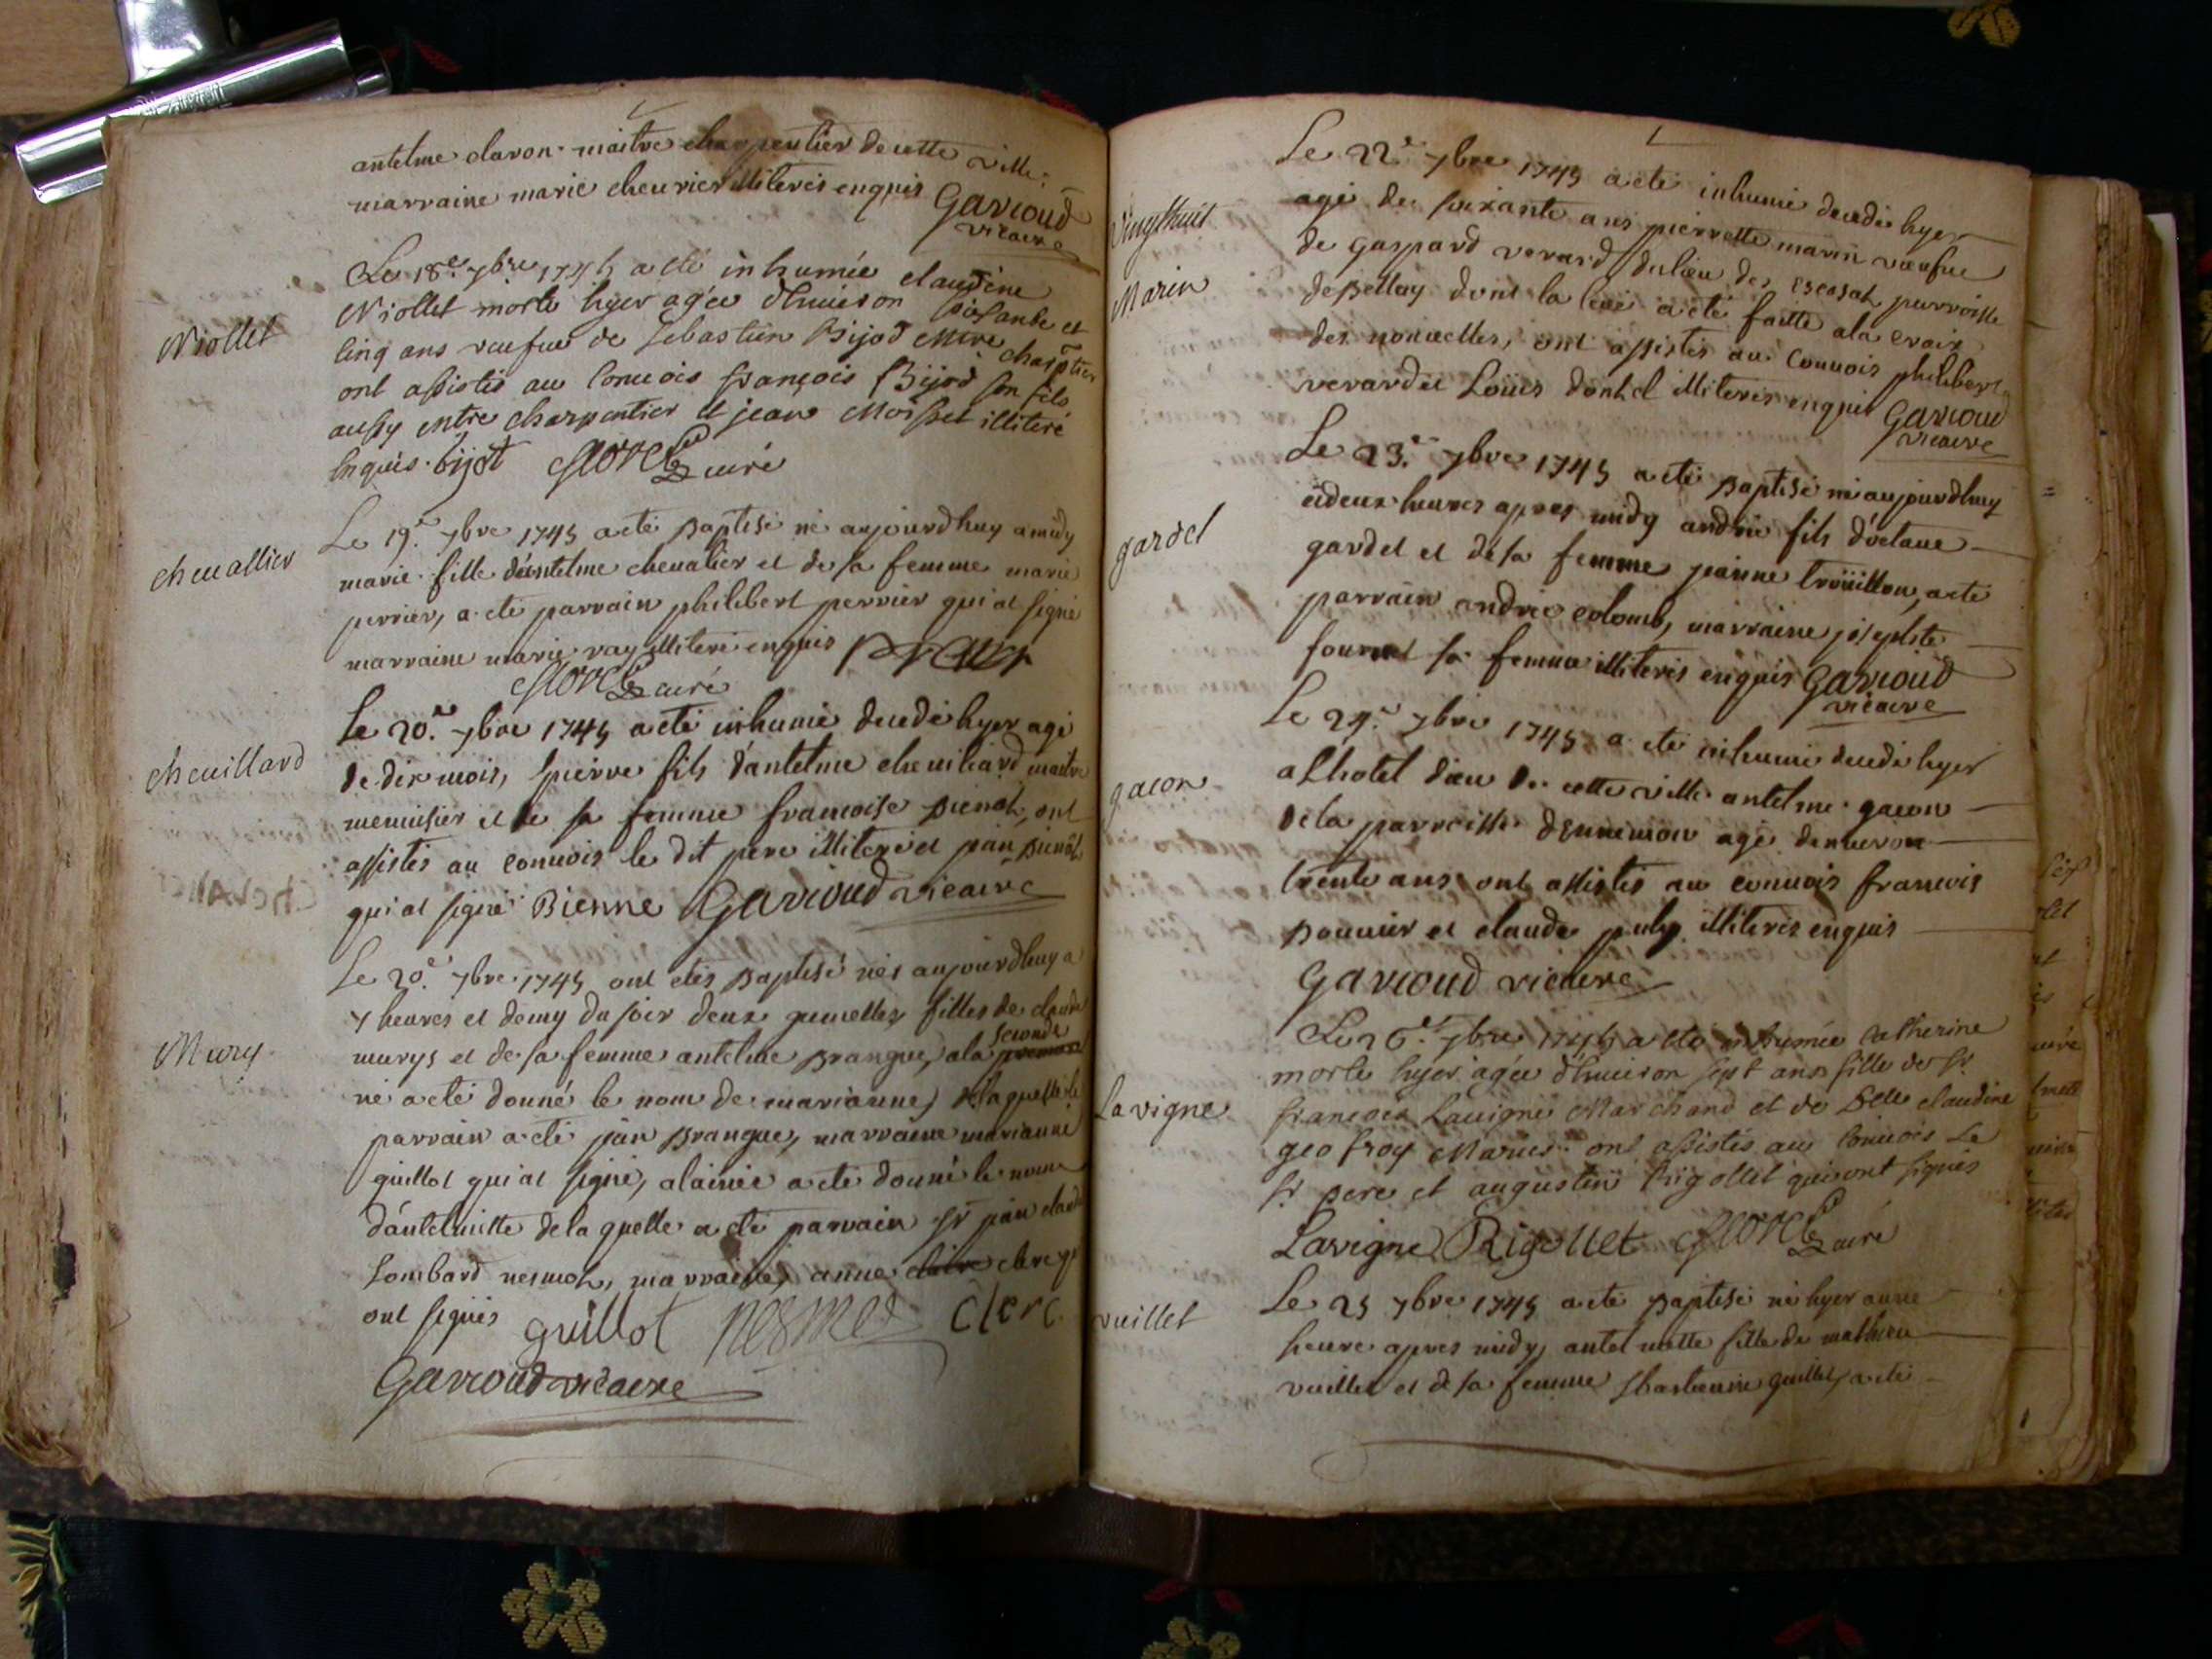 antelme claron maitre charpentier de cette ville
marraine marie cheurier illiteres enquis Garioud
vicaire
Niollet
Le 18.e 7bre 1745 a été inhumée claudine
Niollet morte hyer agée d'huiron soisante et
cinq ans veufue de Sebastien Bijod mtre charptier
ont assistis au conuois françois Bijod son fils
aussy mtre charpentier et jean illiteré
enquis. bijot curé
cheuallier
Le 19.e 7bre 1745 a eté baptisé né aujourdhuy a midy
marie fille d'antelme cheualier et de sa femme marie
perrier, a eté parrain philibert perrier qui at signé
marraine marie ray illiteré enquis
curé
cheuillard
Le 20.e 7bre 1745 a eté inhumé decedé hyer agé
de dix mois, pierre fils d'antelme cheuiliard maitre
menuisier et de sa femme francoise, ont
assistés au conuois le dit pere illiteré et jean
qui at signé Bienne Garioud vicaire
Mury
Le 20.e 7bre 1745 ont etés baptisé nés aujourdhuy a
7 heures et demy du soir deux gemelles filles de claude
murys et de sa femme antelme brangue, a la seconde
né a eté donné le nom de marianne, de laquelle le
parrain a eté jean brangue, marraine marianne
guillot qui at signé, a lainée a eté donné le nom
d'antelmette de la quelle a eté parrain sr jean claude
Lombard nesmoz, marraine, anne claire clerc qui
ont signés guillot nesmoz clerc
Garioud vicaire
Vingthuit
Marin
Le 22.e 7bre 1745 a eté inhumé decedé hyer
agé de soixante ans pierrette marin voeufue
de gaspard verard du lieu des parroisse
de pellay dont la leué a eté faitte a la croix
des nouuelles, ont assistés au conuois philibert
verard et Loüis illiteres enquis Garioud
vicaire
gardel
Le 23.e 7bre 1745 a eté baptisé né aujourdhuy
a deux heures apres midy andrié fils d'octaue
gardel et de sa femme jeanne troüillon, a eté
parrain andrié colomb, marraine josephte
sa femme illiteres enquis Garioud
vicaire
gacon
Le 24.e 7bre 1745 a eté inhumé decedé hyer
a lhotel dieu de cette ville antelme gacon
de la parroisse d'ennemon agé denuiron
trente ans ont assistés au conuois francois
bouuier et claude puly illiteres enquis
Garioud vicaire
Lavigne
Le 26.e 7bre 1745 a eté inhumée Catherine
morte hyer agée d'huiron sept ans fille de sr
françois Lauigne Marchand et de Delle claudine
geofroy Mariés ont assistés au conuois Le
sr pere et augustin Rigollet qui ont signés
Lavigne Rigollet curé
vuillet
Le 25 7bre 1745 a eté baptisé né hyer a une
heure apres midy, antelmette fille de mathieu
vuillet et de sa femme guillet, a eté